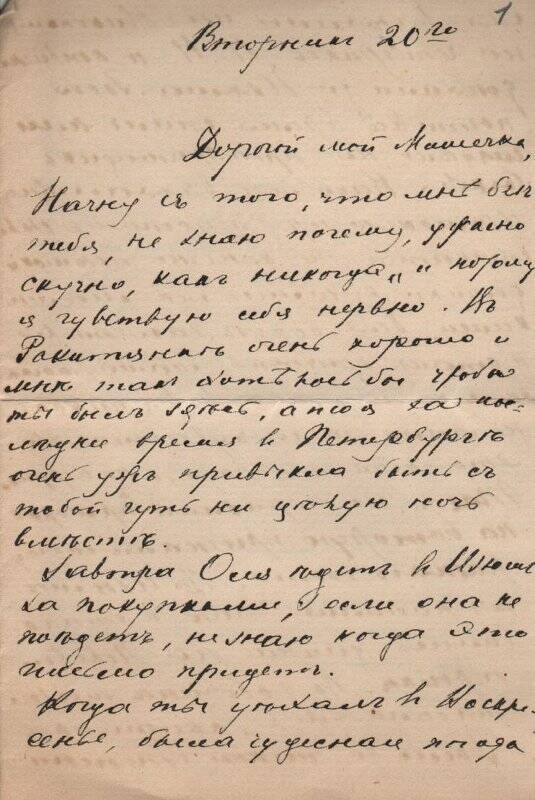 1
Вторникъ 20го
Дорогой мой Мишечка,
Начну съ того, что мнѣ безъ
тебя, не знаю почему, ужасно
скучно, какъ никогда и потому
я чувствую себя нервно. Въ
очень хорошо и
мнѣ такъ хотѣлось бы чтобы
ты былъ здѣсь, а то я за пос-
время в Петербургѣ
очень ужъ привыкла быть съ
тобой чуть ни цѣлую ночь
вмѣстѣ.
Завтра Оля ѣдетъ в
за покупками, если она не
поѣдетъ, не знаю когда это
письмо придетъ.
Когда ты уѣхалъ в Воскре-
сенье, была чудесная погода